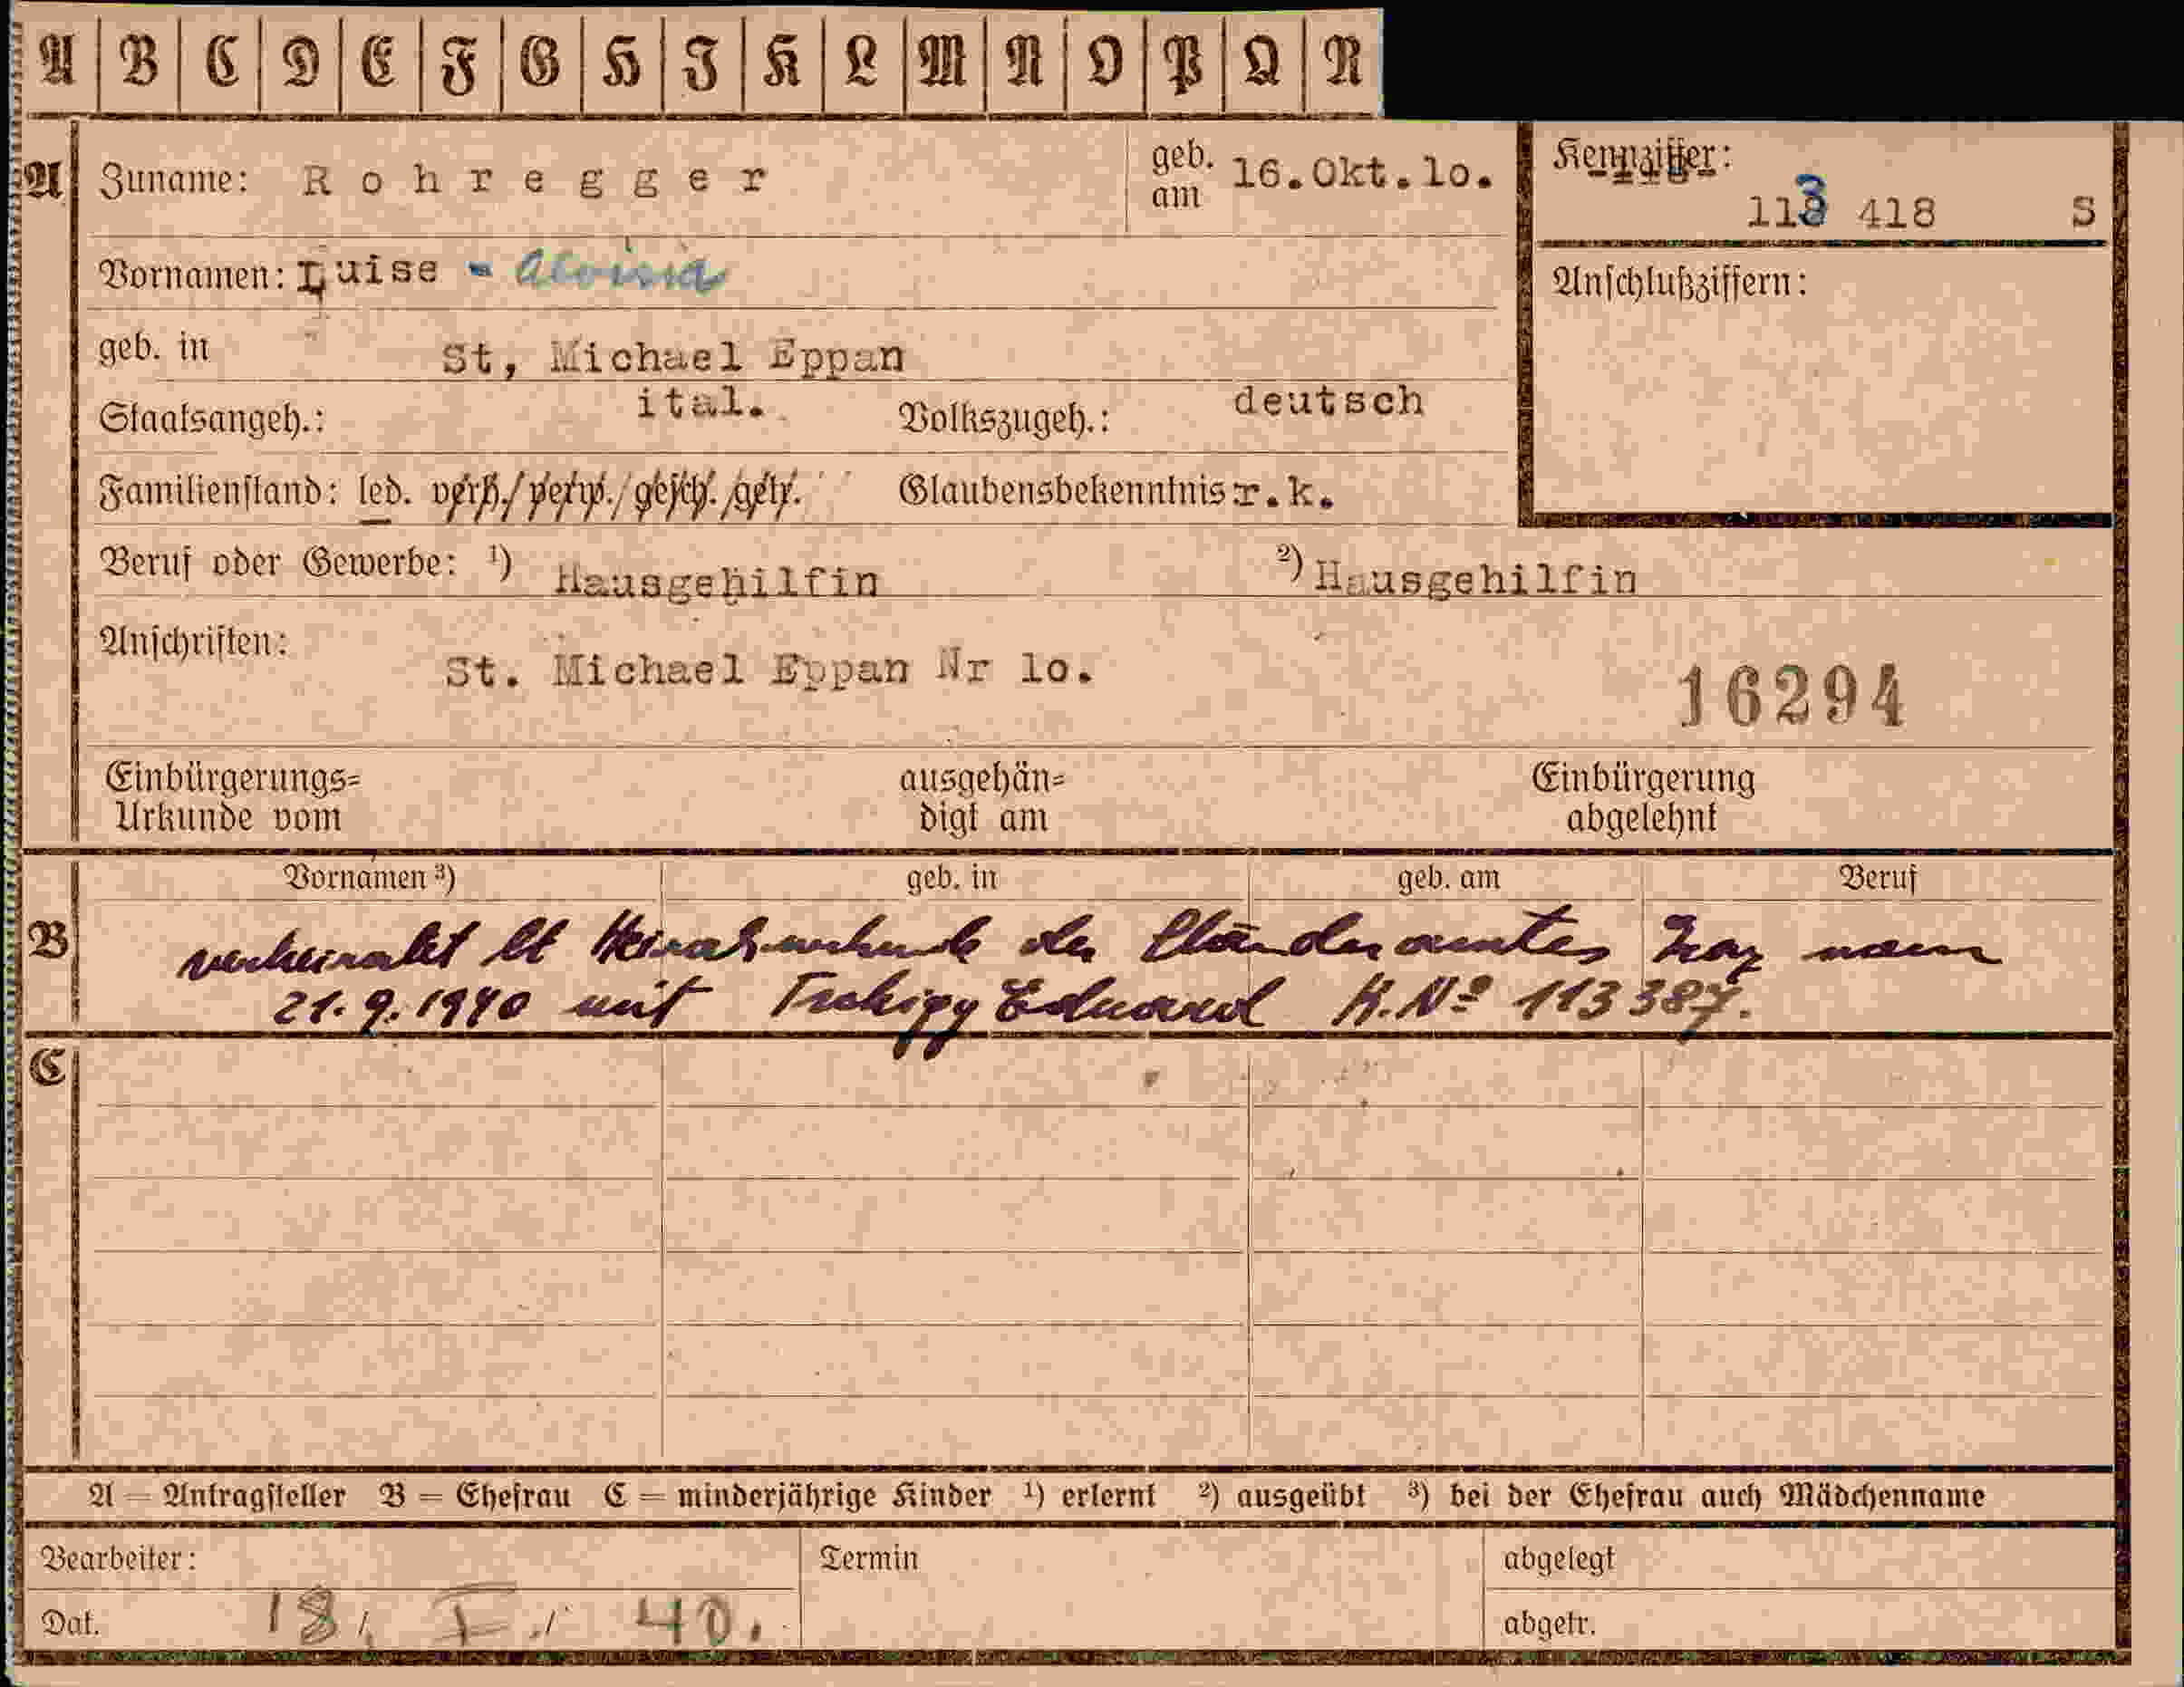 A B C D E F G H I K L M N O P Q R
A Zuname: Rohregger geb. am 16.Okt.lo. Kennziffer:
113 418 S
Vornamen: Luise - Aloisia Anschlußziffern:
geb. in St, Michael Eppan
Staatsangeh.: ital. Volkszugeh.: deutsch
Familienstand: led. verh./verw./gesch./getr. Glaubensbekenntnis r.k.
Beruf oder Gewerbe: ¹) Hausgehilfin ²) Hausgehilfin
Anschriften: St. Michael Eppan Nr lo.
16294
Einbürgerungs= ausgehän= Einbürgerung
Urkunde vom digt am abgelehnt
Vornamen ³) geb. in geb. am Beruf
B verheiratet lt Heiratsurkunde des Standesamtes vom
21.9.1940 mit Eduard K.Nº 113387.
C
A = Antragsteller B = Ehefrau C = minderjährige Kinder ¹) erlernt ²) ausgeübt ³) bei der Ehefrau auch Mädchenname
Bearbeiter: Termin abgelegt
Dat. 18. I. 40. abgetr.